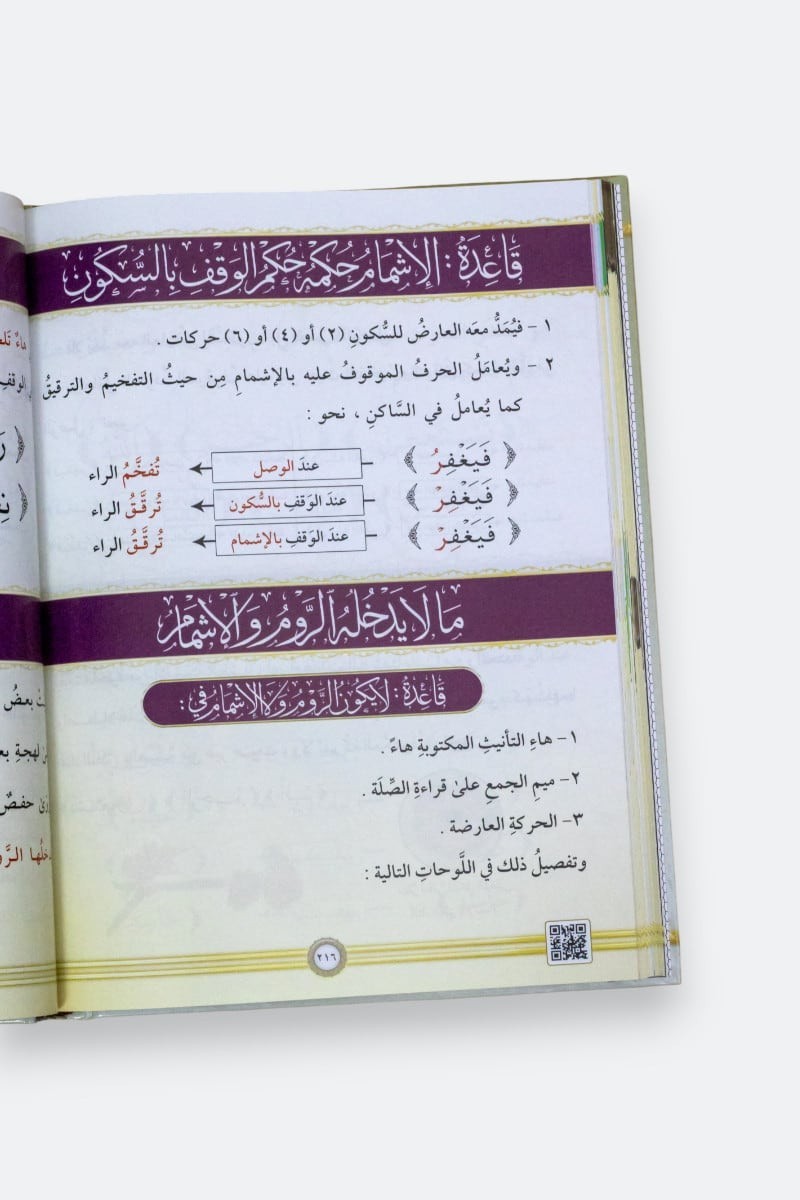 قَاعِدَةُ: الإِشْمَامُ حُكْمُهُ حُكْمُ الوَقْفِ بِالسُّكُونِ
١ - فيُمَدُّ معَه العارضُ للسُّكونِ (٢) أو (٤) أو (٦) حركات .
٢ - ويُعامَلُ الحرفُ الموقوفُ عليه بالإشمامِ مِن حيثُ التفخيمُ والترقيقُ
كما يُعاملُ في السَّاكنِ ، نحو :
﴿ فَيَغْفِرُ ﴾ – عندَ الوصل ← تُفخَّمُ الراء
﴿ فَيَغْفِرْ ﴾ – عندَ الوَقفِ بالسُّكون ← تُرقَّقُ الراء
﴿ فَيَغْفِرْ ﴾ – عندَ الوَقفِ بالإشمام ← تُرقَّقُ الراء
مَا لَا يَدْخُلُهُ الرَّوْمُ وَالإِشْمَامُ
قَاعِدَةُ: لَا يَكُونُ الرَّوْمُ وَلَا الإِشْمَامُ فِي:
١- هاءِ التأنيثِ المكتوبةِ هاءً .
٢- ميمِ الجمعِ علىٰ قراءةِ الصِّلَة .
٣- الحركةِ العارضة .
وتفصيلُ ذلك في اللَّوحاتِ التالية :
٢١٦
بعضُ
لهجةِ
حفصٌ